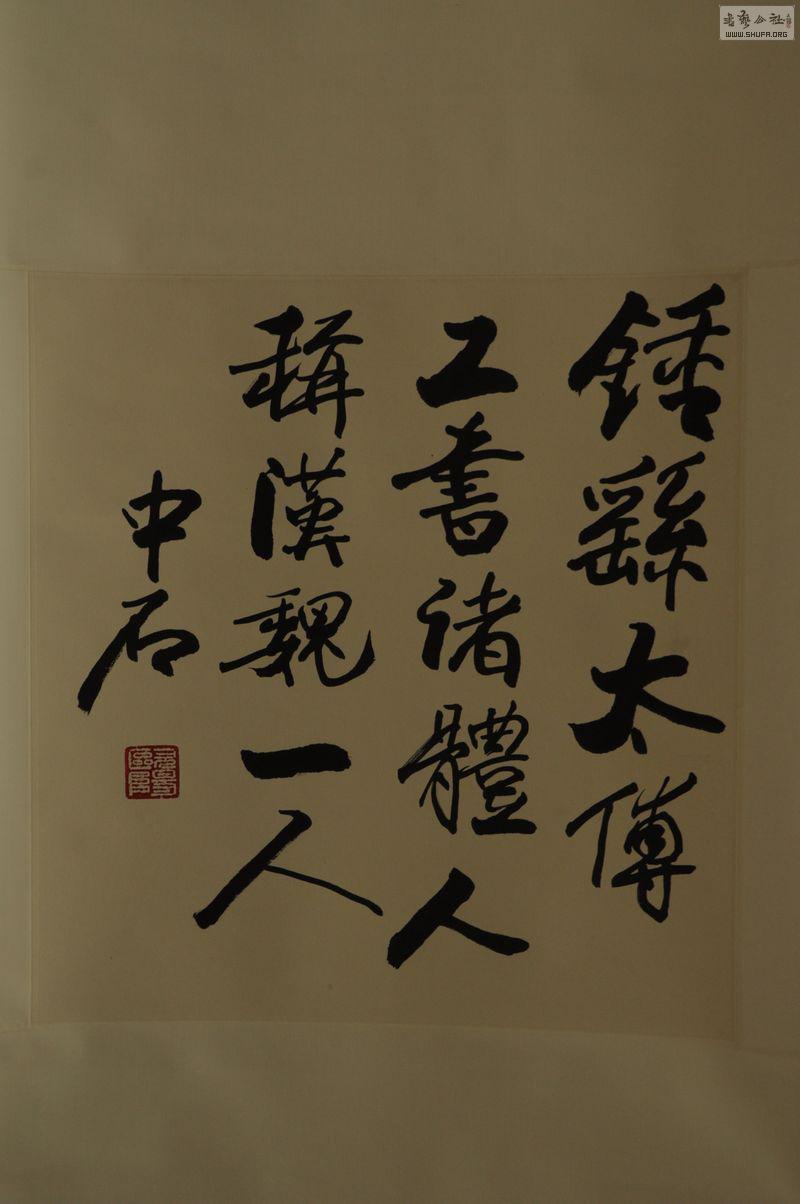 鍾繇太傅
工書諸體人
稱漢魏一人
中石
書藝公社
WWW.SHUFA.ORG